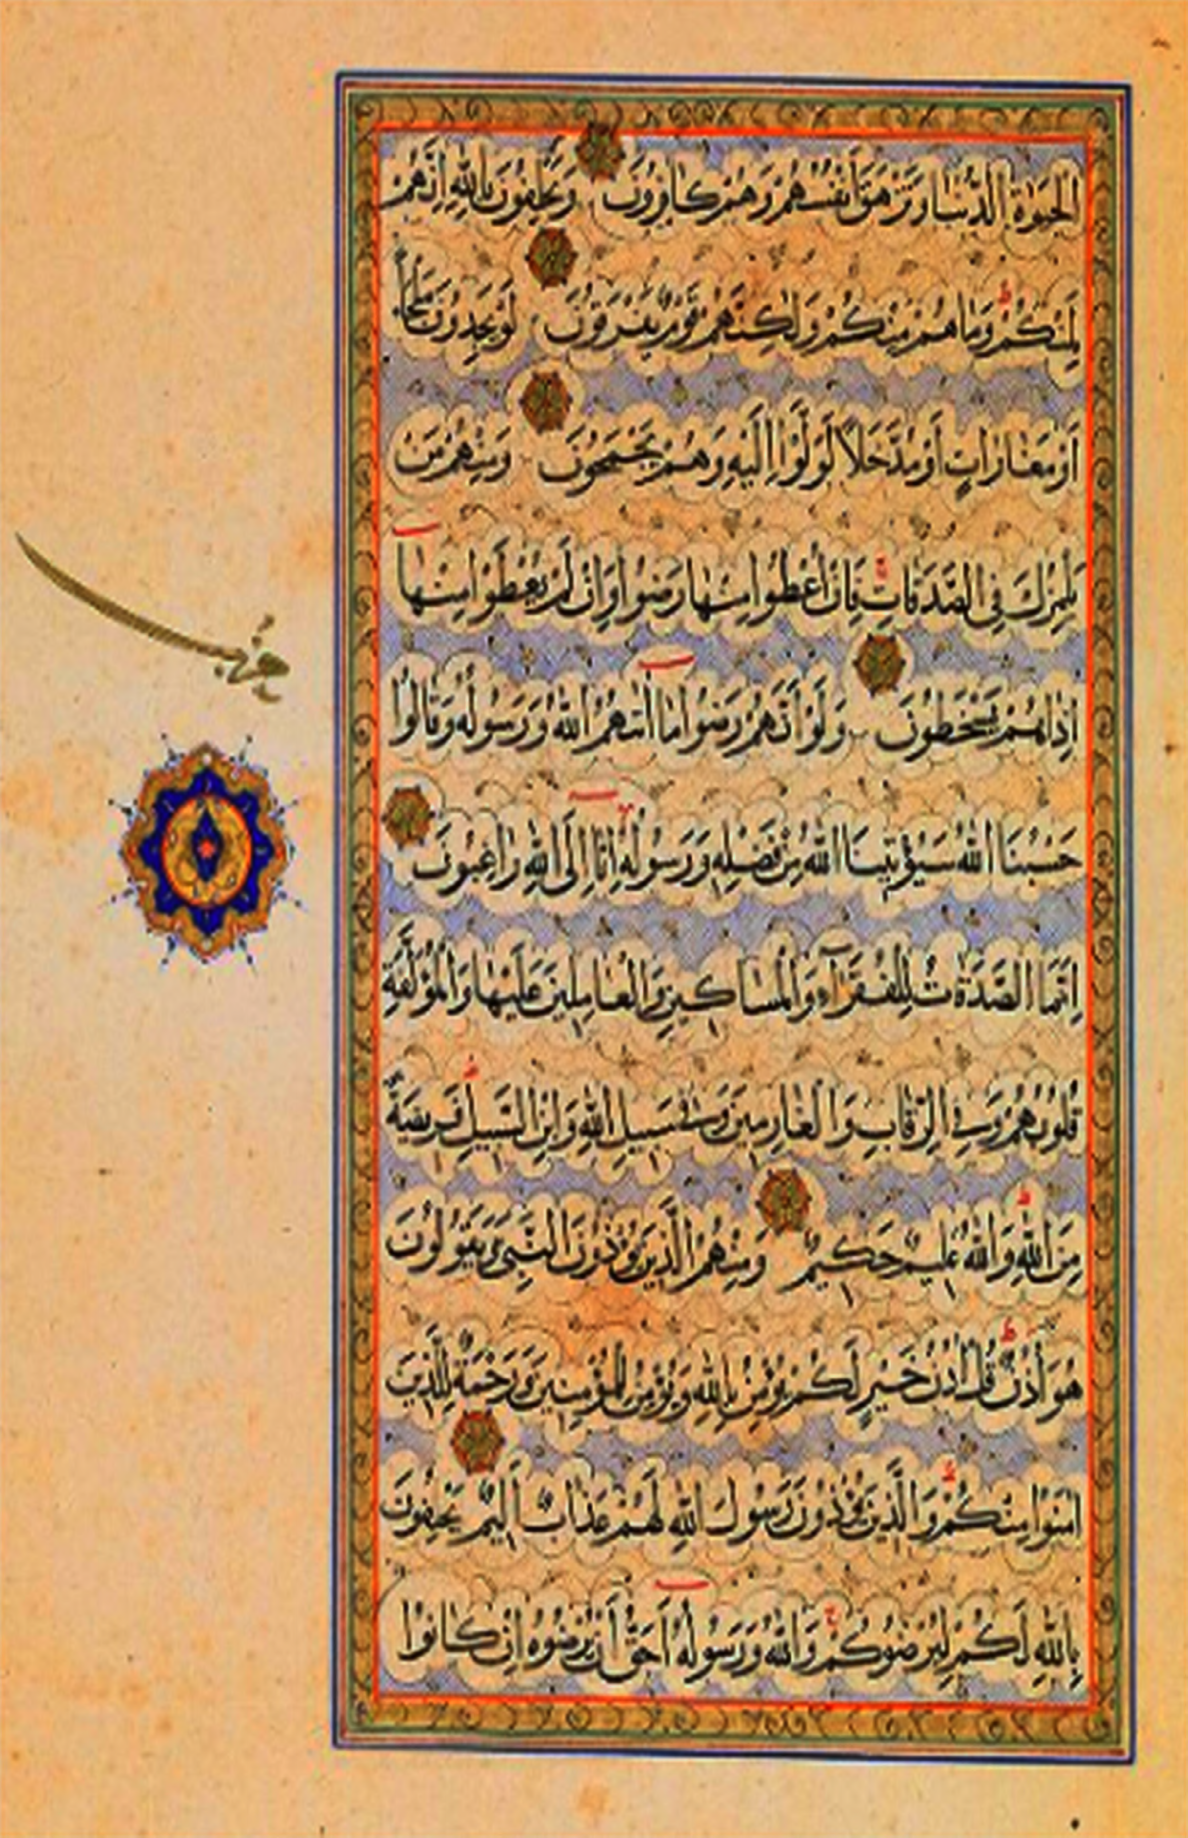 الحيوة الدنيا وتزهق أنفسهم وهم كافرون ويحلفون بالله إنهم
لمنكم وما هم منكم ولكنهم قوم يفرقون لو يجدون ملجأ
أو مغارات أو مدخلا لولوا إليه وهم يجمحون ومنهم من
يلمزك في الصدقات فإن أعطوا منها رضوا وإن لم يعطوا منها
إذا هم يسخطون ولو أنهم رضوا ما آتيهم الله ورسوله وقالوا
حسبنا الله سيؤتينا الله من فضله ورسوله إنا إلى الله راغبون
إنما الصدقات للفقرآء والمساكين والعاملين عليها والمؤلفة
قلوبهم وفي الرقاب والغارمين وفي سبيل الله وابن السبيل فريضة
من الله والله عليم حكيم ومنهم الذين يؤذون النبي ويقولون
هو أذن قل أذن خير لكم يؤمن بالله ويؤمن للمؤمنين ورحمة للذين
آمنوا منكم والذين يؤذون رسول الله لهم عذاب أليم يحلفون
بالله لكم ليرضوكم والله ورسوله أحق أن يرضوه إن كانوا
حزب